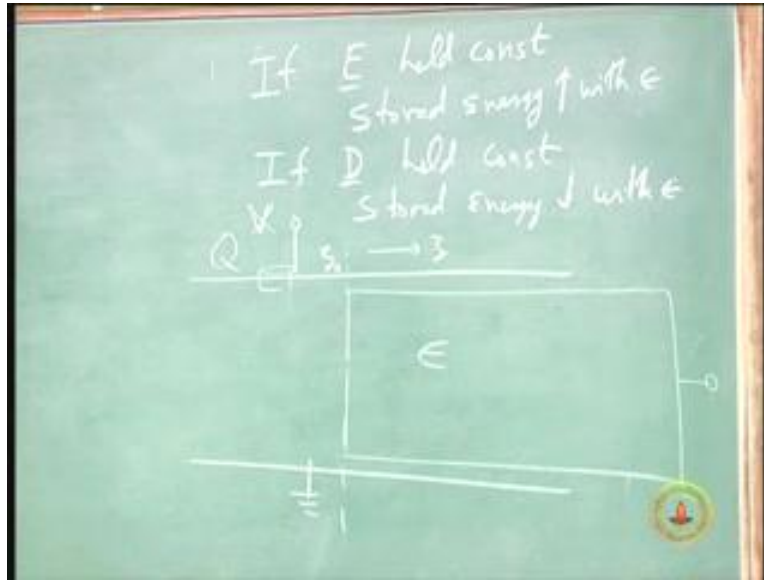 If E held const
stored energy ↑ with ϵ
If D held const
stored energy ↓ with ϵ
V
Q
ϵ